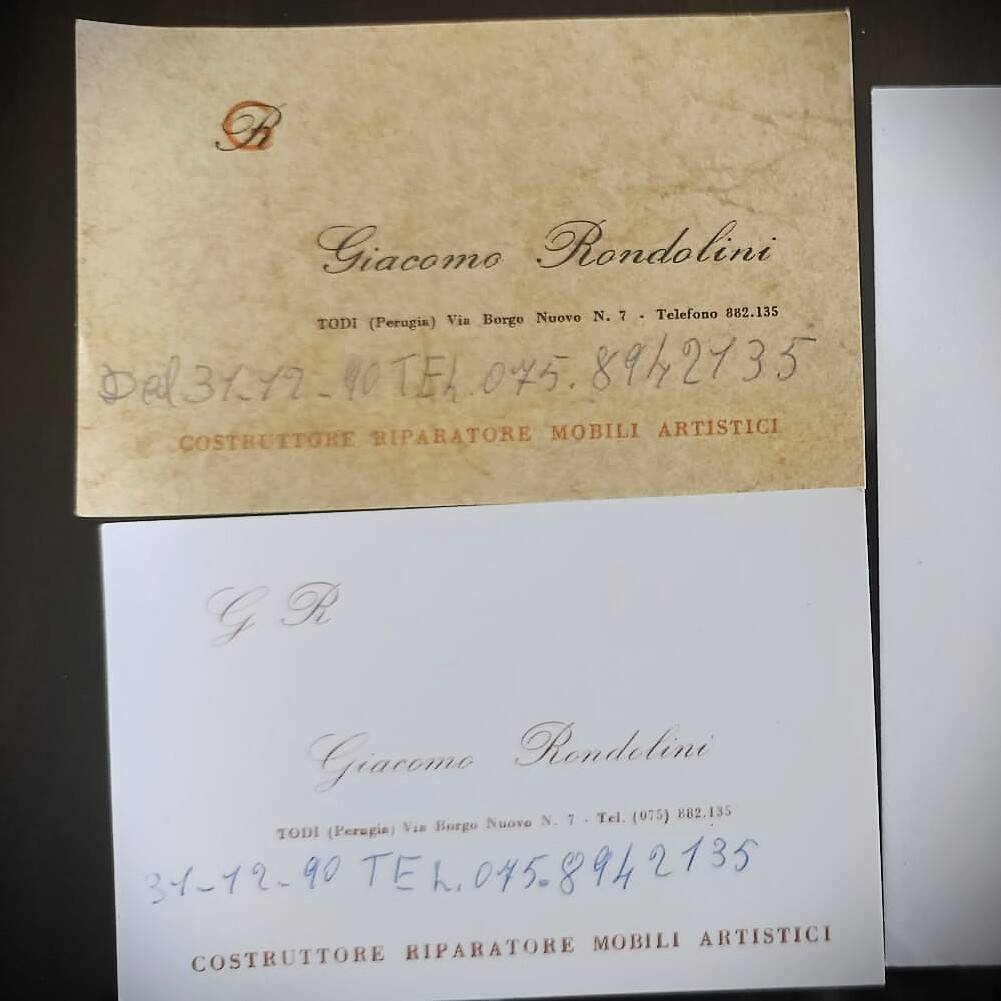 GR
Giacomo Rondolini
TODI (Perugia) Via Borgo Nuovo N. 7 - Telefono 882.135
Dal 31-12-90 TEL. 075.8942135
COSTRUTTORE RIPARATORE MOBILI ARTISTICI
G R
Giacomo Rondolini
TODI (Perugia) Via Borgo Nuovo N. 7 - Tel. (075) 882.135
31-12-90 TEL. 075.8942135
COSTRUTTORE RIPARATORE MOBILI ARTISTICI